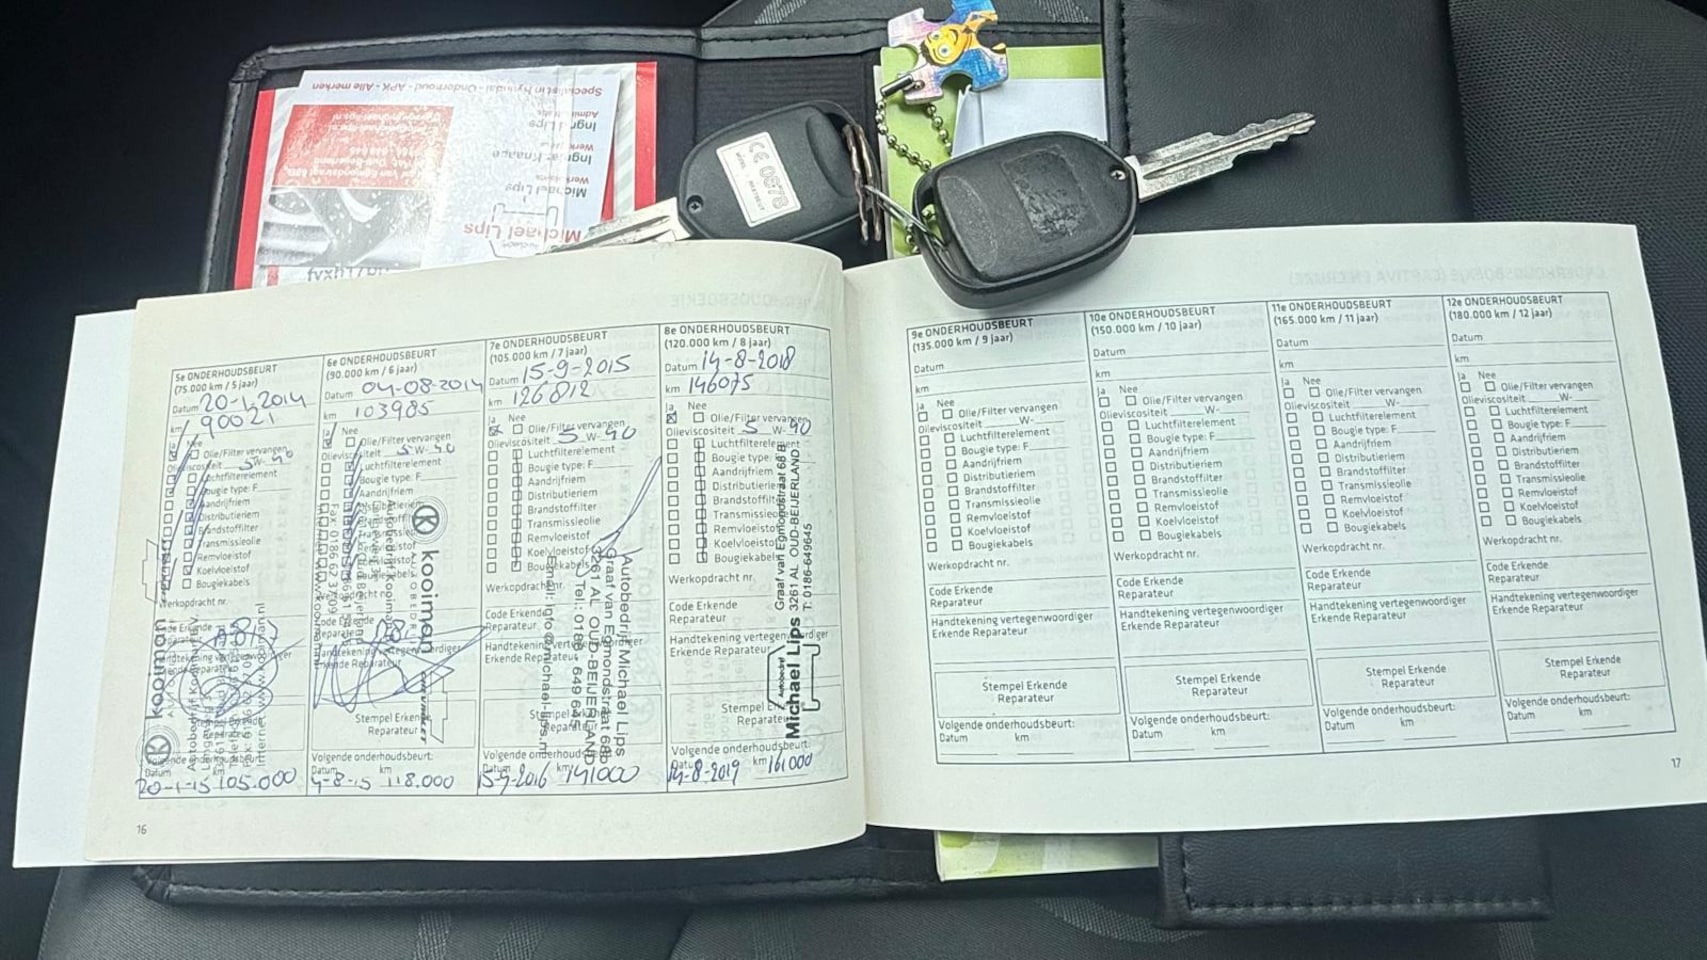 Specialist in Hyundai - Onderhoud - APK - Alle merken
Ingrid Lips
Michael Lips
Michael Lips
CE 0678
5e ONDERHOUDSBEURT
(75.000 km / 5 jaar)
Datum 20-1-2014
km 90021
Ja Nee
Olie/Filter vervangen
Olieviscositeit 5 W- 40
Luchtfilterelement
Bougie type: F
Aandrijfriem
Distributieriem
Brandstoffilter
Transmissieolie
Remvloeistof
Koelvloeistof
Bougiekabels
Werkopdracht nr.
Code Erkende
Reparateur
Handtekening vertegenwoordiger
Erkende Reparateur
kooiman
Volgende onderhoudsbeurt:
Datum km
20-1-15 105.000
6e ONDERHOUDSBEURT
(90.000 km / 6 jaar)
Datum 04-08-2014
km 103985
Ja Nee
Olie/Filter vervangen
Olieviscositeit 5 W- 40
Luchtfilterelement
Bougie type: F
Aandrijfriem
kooiman
Stempel Erkende
Reparateur
Volgende onderhoudsbeurt:
Datum km
4-8-15 118.000
7e ONDERHOUDSBEURT
(105.000 km / 7 jaar)
Datum 15-9-2015
km 126812
Ja Nee
Olie/Filter vervangen
Olieviscositeit 5 W- 40
Luchtfilterelement
Bougie type: F
Aandrijfriem
Distributieriem
Brandstoffilter
Transmissieolie
Remvloeistof
Koelvloeistof
Bougiekabels
Werkopdracht nr.
Code Erkende
Reparateur
Handtekening vertegenwoordiger
Erkende Reparateur
Autobedrijf Michael Lips
Graaf van Egmondstraat 68b
3261 AL OUD-BEIJERLAND
Tel.: 0186 - 649 645
Email: info@michael-lips.nl
Volgende onderhoudsbeurt:
Datum km
15-9-2016 141000
8e ONDERHOUDSBEURT
(120.000 km / 8 jaar)
Datum 14-8-2018
km 146075
Ja Nee
Olie/Filter vervangen
Olieviscositeit 5 W- 40
Luchtfilterelement
Bougie type: F
Aandrijfriem
Distributieriem
Brandstoffilter
Transmissieolie
Remvloeistof
Koelvloeistof
Bougiekabels
Werkopdracht nr.
Code Erkende
Reparateur
Handtekening vertegenwoordiger
Erkende Reparateur
Autobedrijf
Michael Lips
Graaf van Egmondstraat 68 B
3261 AL OUD-BEIJERLAND
T: 0186-649645
Stempel Erkende
Reparateur
Volgende onderhoudsbeurt:
Datum km
14-8-2019 161000
16
9e ONDERHOUDSBEURT
(135.000 km / 9 jaar)
Datum
km
Ja Nee
Olie/Filter vervangen
Olieviscositeit W-
Luchtfilterelement
Bougie type: F
Aandrijfriem
Distributieriem
Brandstoffilter
Transmissieolie
Remvloeistof
Koelvloeistof
Bougiekabels
Werkopdracht nr.
Code Erkende
Reparateur
Handtekening vertegenwoordiger
Erkende Reparateur
Stempel Erkende
Reparateur
Volgende onderhoudsbeurt:
Datum km
10e ONDERHOUDSBEURT
(150.000 km / 10 jaar)
Datum
km
Ja Nee
Olie/Filter vervangen
Olieviscositeit W-
Luchtfilterelement
Bougie type: F
Aandrijfriem
Distributieriem
Brandstoffilter
Transmissieolie
Remvloeistof
Koelvloeistof
Bougiekabels
Werkopdracht nr.
Code Erkende
Reparateur
Handtekening vertegenwoordiger
Erkende Reparateur
Stempel Erkende
Reparateur
Volgende onderhoudsbeurt:
Datum km
11e ONDERHOUDSBEURT
(165.000 km / 11 jaar)
Datum
km
Ja Nee
Olie/Filter vervangen
Olieviscositeit W-
Luchtfilterelement
Bougie type: F
Aandrijfriem
Distributieriem
Brandstoffilter
Transmissieolie
Remvloeistof
Koelvloeistof
Bougiekabels
Werkopdracht nr.
Code Erkende
Reparateur
Handtekening vertegenwoordiger
Erkende Reparateur
Stempel Erkende
Reparateur
Volgende onderhoudsbeurt:
Datum km
12e ONDERHOUDSBEURT
(180.000 km / 12 jaar)
Datum
km
Ja Nee
Olie/Filter vervangen
Olieviscositeit W-
Luchtfilterelement
Bougie type: F
Aandrijfriem
Distributieriem
Brandstoffilter
Transmissieolie
Remvloeistof
Koelvloeistof
Bougiekabels
Werkopdracht nr.
Code Erkende
Reparateur
Handtekening vertegenwoordiger
Erkende Reparateur
Stempel Erkende
Reparateur
Volgende onderhoudsbeurt:
Datum km
17